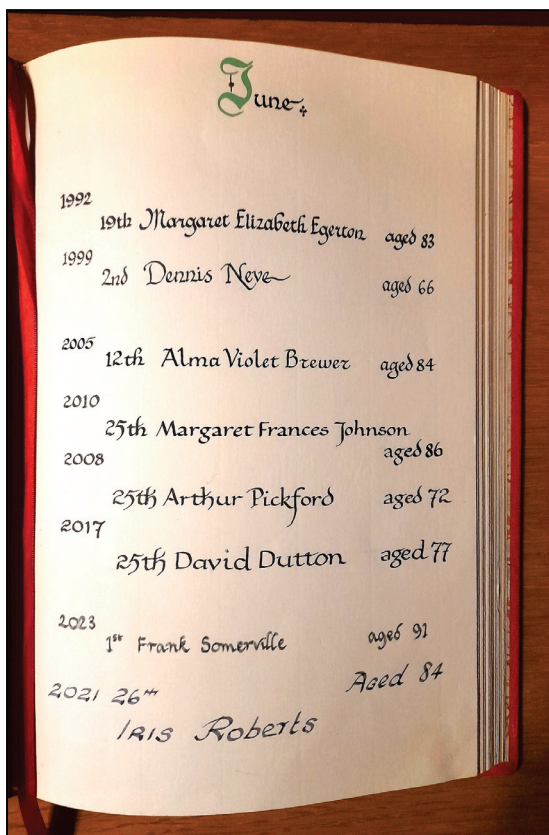 June
1992
19th Margaret Elizabeth Egerton aged 83
1999
2nd Dennis Neve aged 66
2005
12th Alma Violet Brewer aged 84
2010
25th Margaret Frances Johnson
aged 86
2008
25th Arthur Pickford aged 72
2017
25th David Dutton aged 77
2023
1st Frank Somerville aged 91
2021 26th Aged 84
Iris Roberts